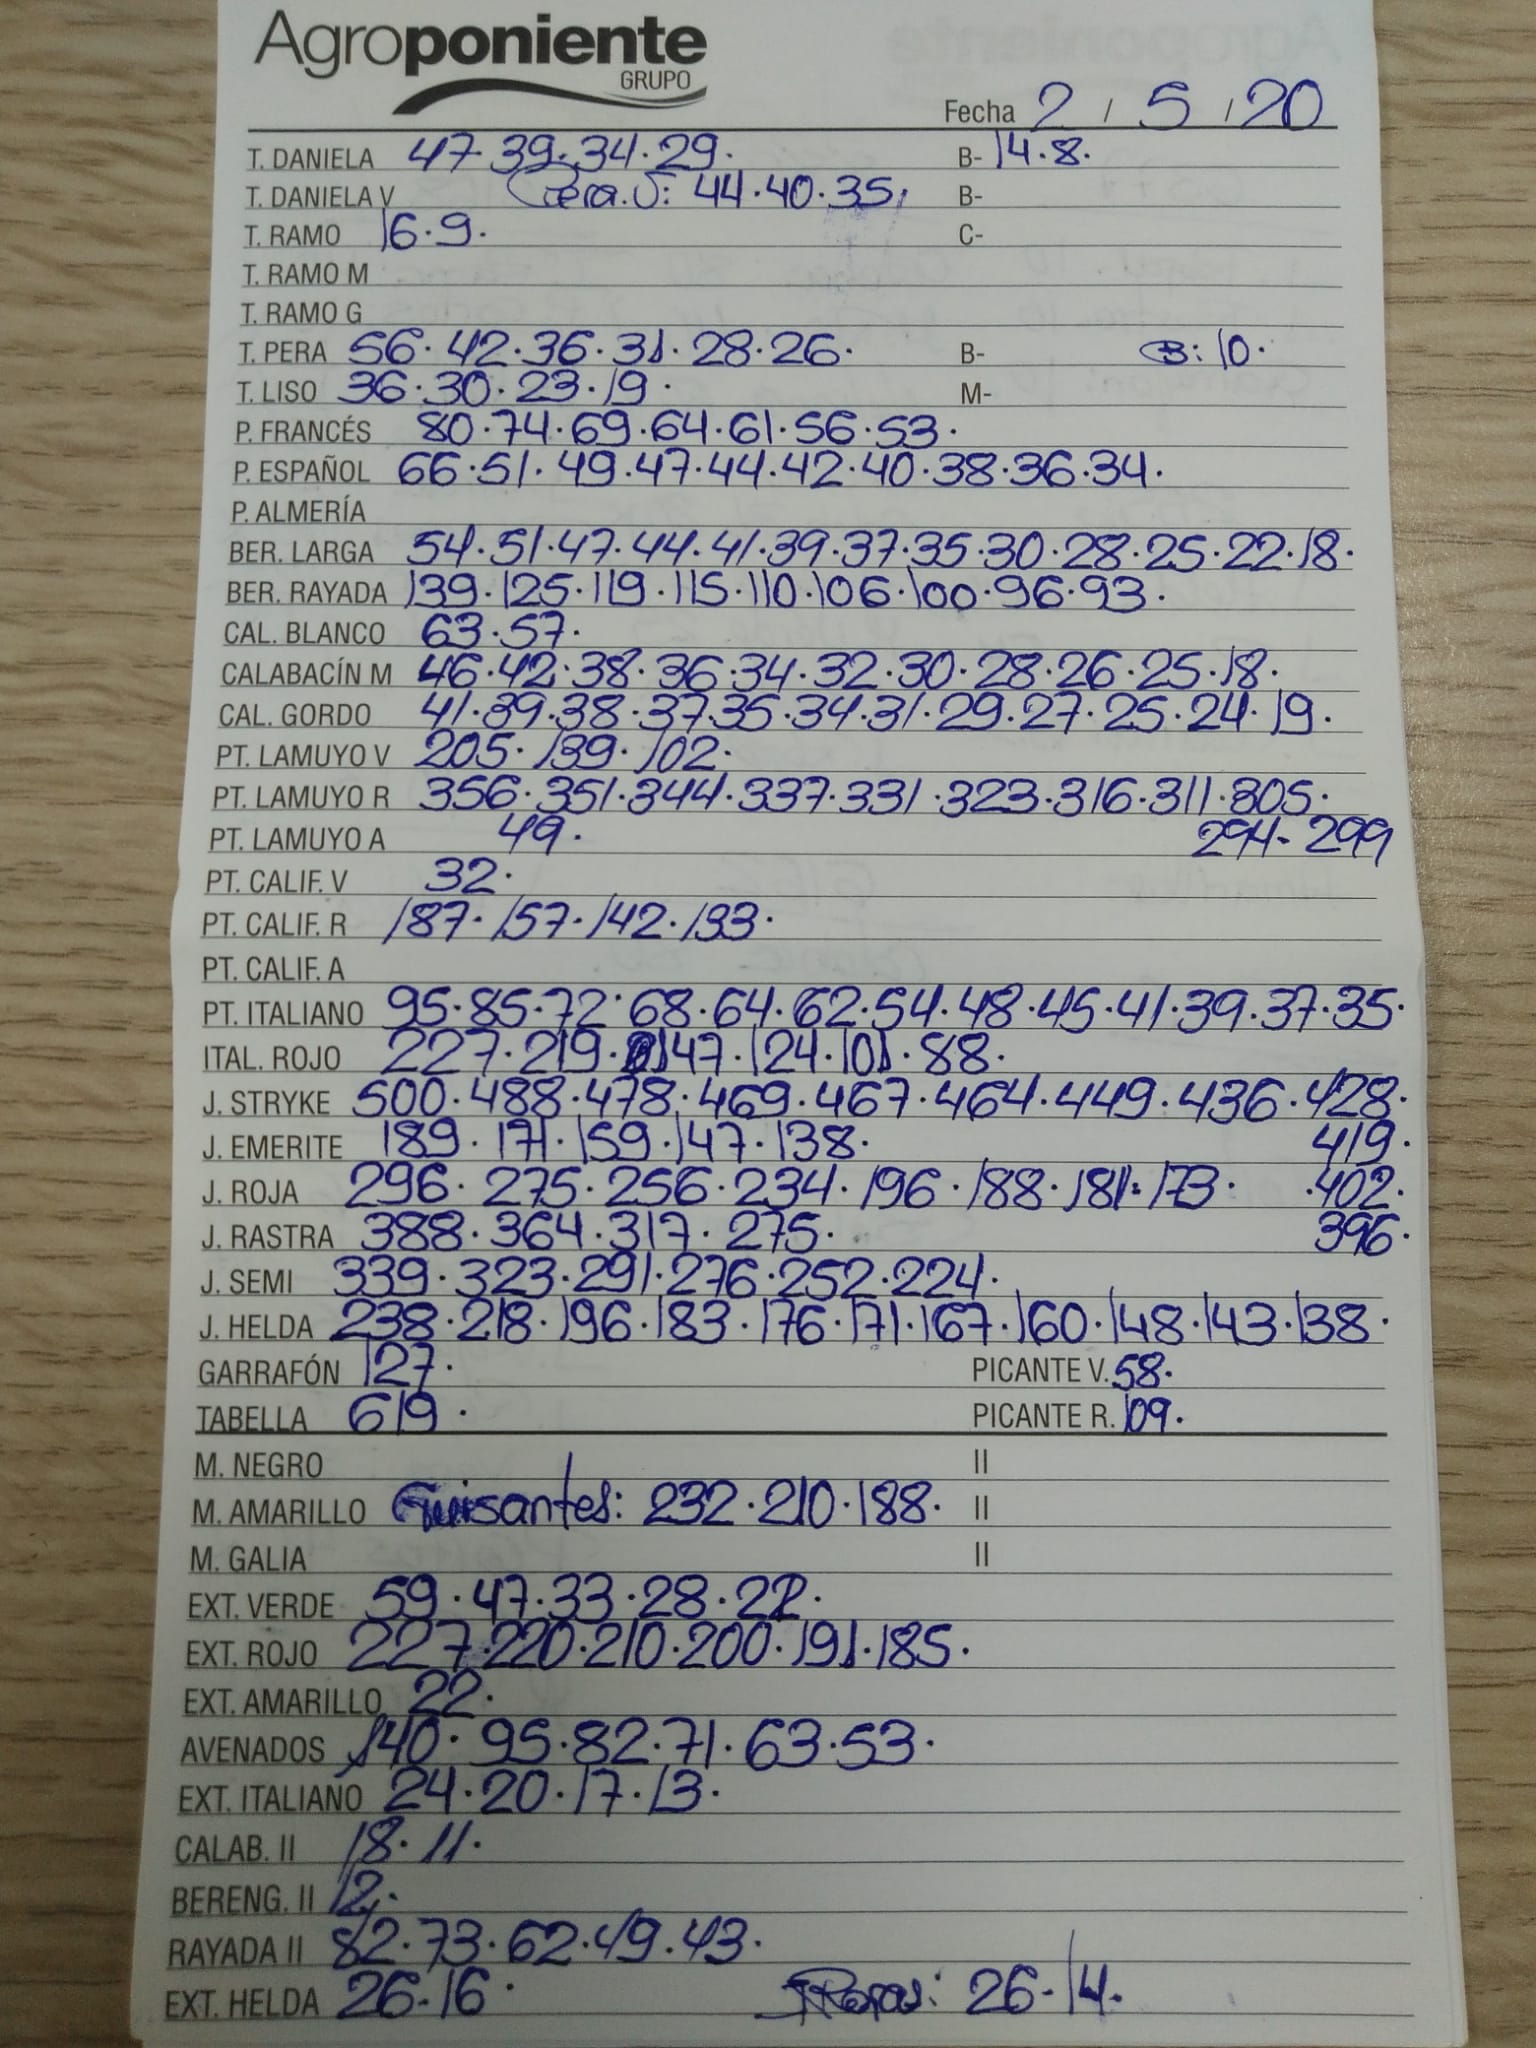 Agroponiente
GRUPO
Fecha 2 / 5 / 20
T. DANIELA 47.39.34.29. B- 14.8.
T. DANIELA V Pera.V: 44.40.35, B-
T. RAMO 16.9. C-
T. RAMO M
T. RAMO G
T. PERA 56.42.36.31.28.26. B- B: 10.
T. LISO 36.30.23.19. M-
P. FRANCÉS 80.74.69.64.61.56.53.
P. ESPAÑOL 66.51.49.47.44.42.40.38.36.34.
P. ALMERÍA
BER. LARGA 54.51.47.44.41.39.37.35.30.28.25.22.18.
BER. RAYADA 139.125.119.115.110.106.100.96.93.
CAL. BLANCO 63.57.
CALABACÍN M 46.42.38.36.34.32.30.28.26.25.18.
CAL. GORDO 41.39.38.37.35.34.31.29.27.25.24.19.
PT. LAMUYO V 205.139.102.
PT. LAMUYO R 356.351.344.337.331.323.316.311.305.
PT. LAMUYO A 49. 294-299
PT. CALIF. V 32.
PT. CALIF. R 187.157.142.133.
PT. CALIF. A
PT. ITALIANO 95.85.72.68.64.62.54.48.45.41.39.37.35.
ITAL. ROJO 227.219.147.124.101.88.
J. STRYKE 500.488.478.469.467.464.449.436.428.
J. EMERITE 189.171.159.147.138. 419.
J. ROJA 296.275.256.234.196.188.181.173. .402.
J. RASTRA 388.364.317.275. 396.
J. SEMI 339.323.291.276.252.224.
J. HELDA 238.218.196.183.176.171.167.160.148.143.138.
GARRAFÓN 127. PICANTE V. 58.
TABELLA 619. PICANTE R. 109.
M. NEGRO II
M. AMARILLO Guisantes: 232.210.188. II
M. GALIA II
EXT. VERDE 59.47.33.28.22.
EXT. ROJO 227.220.210.200.191.185.
EXT. AMARILLO 22.
AVENADOS 140.95.82.71.63.53.
EXT. ITALIANO 24.20.17.13.
CALAB. II 18.11.
BERENG. II 12.
RAYADA II 82.73.62.49.43.
EXT. HELDA 26.16. 26.14.